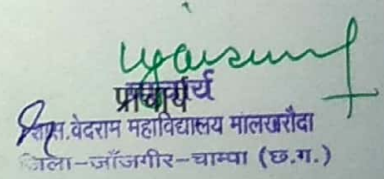 प्राचार्य
वेदराम महाविद्यालय मालखरौदा
जिला-जाँजगीर-चाम्पा (छ.ग.)